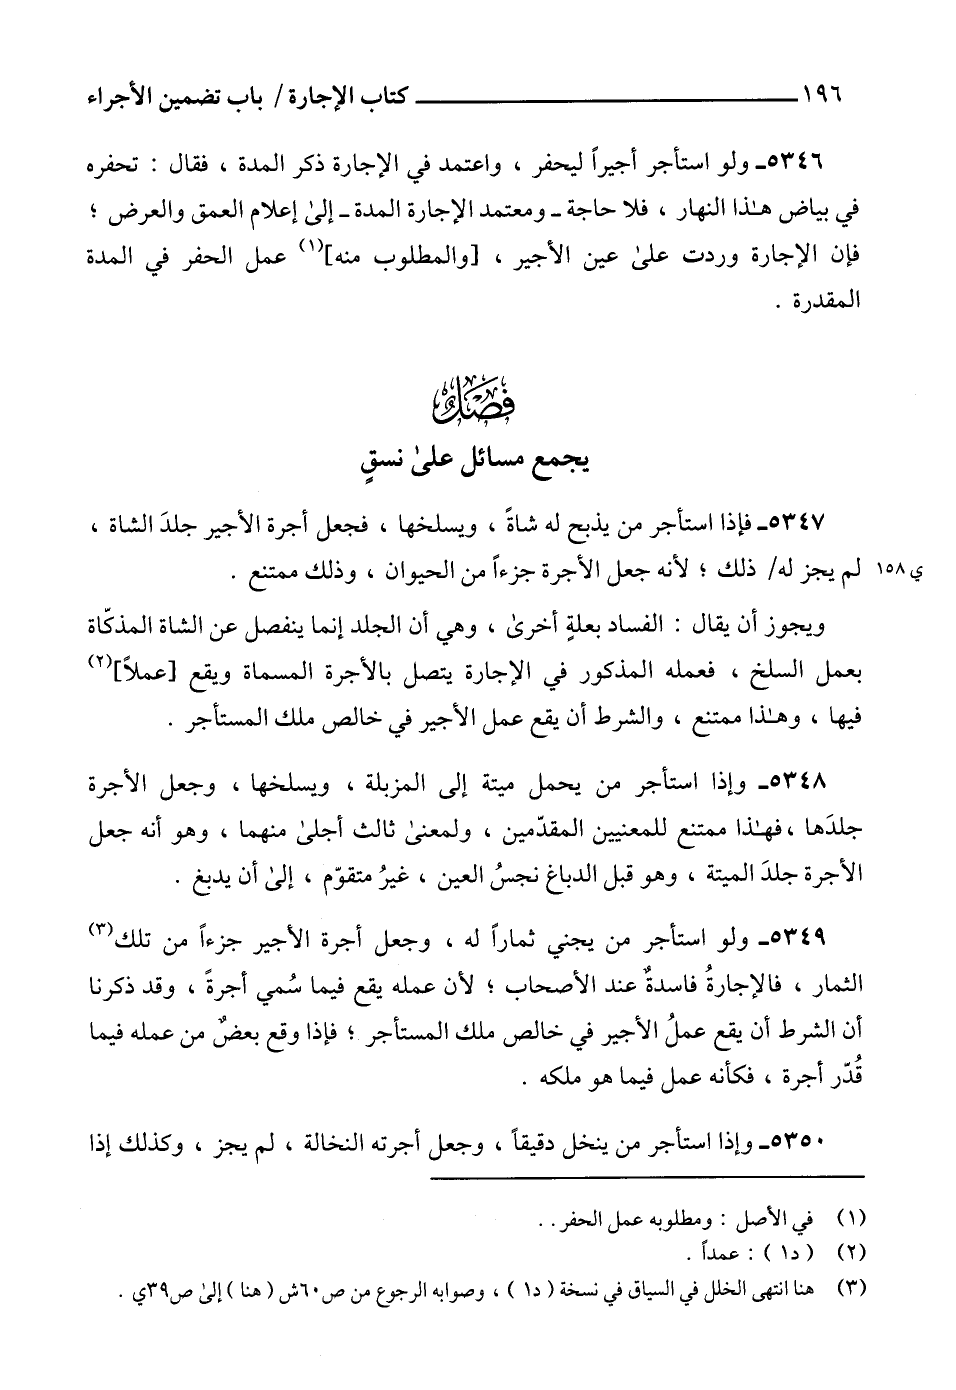 ١٩٦ ــــــــــــــــــــ كتاب الإجارة / باب تضمين الأجراء
٥٣٤٦ـ ولو استأجر أجيراً ليحفر ، واعتمد في الإجارة ذكر المدة ، فقال : تحفره
في بياض هـٰذا النهار ، فلا حاجة ـ ومعتمد الإجارة المدة ـ إلىٰ إعلام العمق والعرض ؛
فإن الإجارة وردت علىٰ عين الأجير ، [والمطلوب منه](١) عمل الحفر في المدة
المقدرة .
فصل
يجمع مسائل علىٰ نسقٍ
٥٣٤٧ـ فإذا استأجر من يذبح له شاةً ، ويسلخها ، فجعل أجرة الأجير جلدَ الشاة ،
ي ١٥٨ لم يجز له/ ذلك ؛ لأنه جعل الأجرة جزءاً من الحيوان ، وذلك ممتنع .
ويجوز أن يقال : الفساد بعلةٍ أخرىٰ ، وهي أن الجلد إنما ينفصل عن الشاة المذكّاة
بعمل السلخ ، فعمله المذكور في الإجارة يتصل بالأجرة المسماة ويقع [عملاً](٢)
فيها ، وهـٰذا ممتنع ، والشرط أن يقع عمل الأجير في خالص ملك المستأجر .
٥٣٤٨ـ وإذا استأجر من يحمل ميتة إلى المزبلة ، ويسلخها ، وجعل الأجرة
جلدَها ، فهـٰذا ممتنع للمعنيين المقدّمين ، ولمعنىٰ ثالث أجلىٰ منهما ، وهو أنه جعل
الأجرة جلدَ الميتة ، وهو قبل الدباغ نجسُ العين ، غيرُ متقوّم ، إلىٰ أن يدبغ .
٥٣٤٩ـ ولو استأجر من يجني ثماراً له ، وجعل أجرة الأجير جزءاً من تلك(٣)
الثمار ، فالإجارةُ فاسدةٌ عند الأصحاب ؛ لأن عمله يقع فيما سُمي أجرةً ، وقد ذكرنا
أن الشرط أن يقع عملُ الأجير في خالص ملك المستأجر ؛ فإذا وقع بعضٌ من عمله فيما
قُدّر أجرة ، فكأنه عمل فيما هو ملكه .
٥٣٥٠ـ وإذا استأجر من ينخل دقيقاً ، وجعل أجرته النخالة ، لم يجز ، وكذلك إذا
(١) في الأصل : ومطلوبه عمل الحفر . .
(٢) ( د١ ) : عمداً .
(٣) هنا انتهى الخلل في السياق في نسخة ( د١ ) ، وصوابه الرجوع من ص٦٠ش ( هنا ) إلىٰ ص٣٩ي .